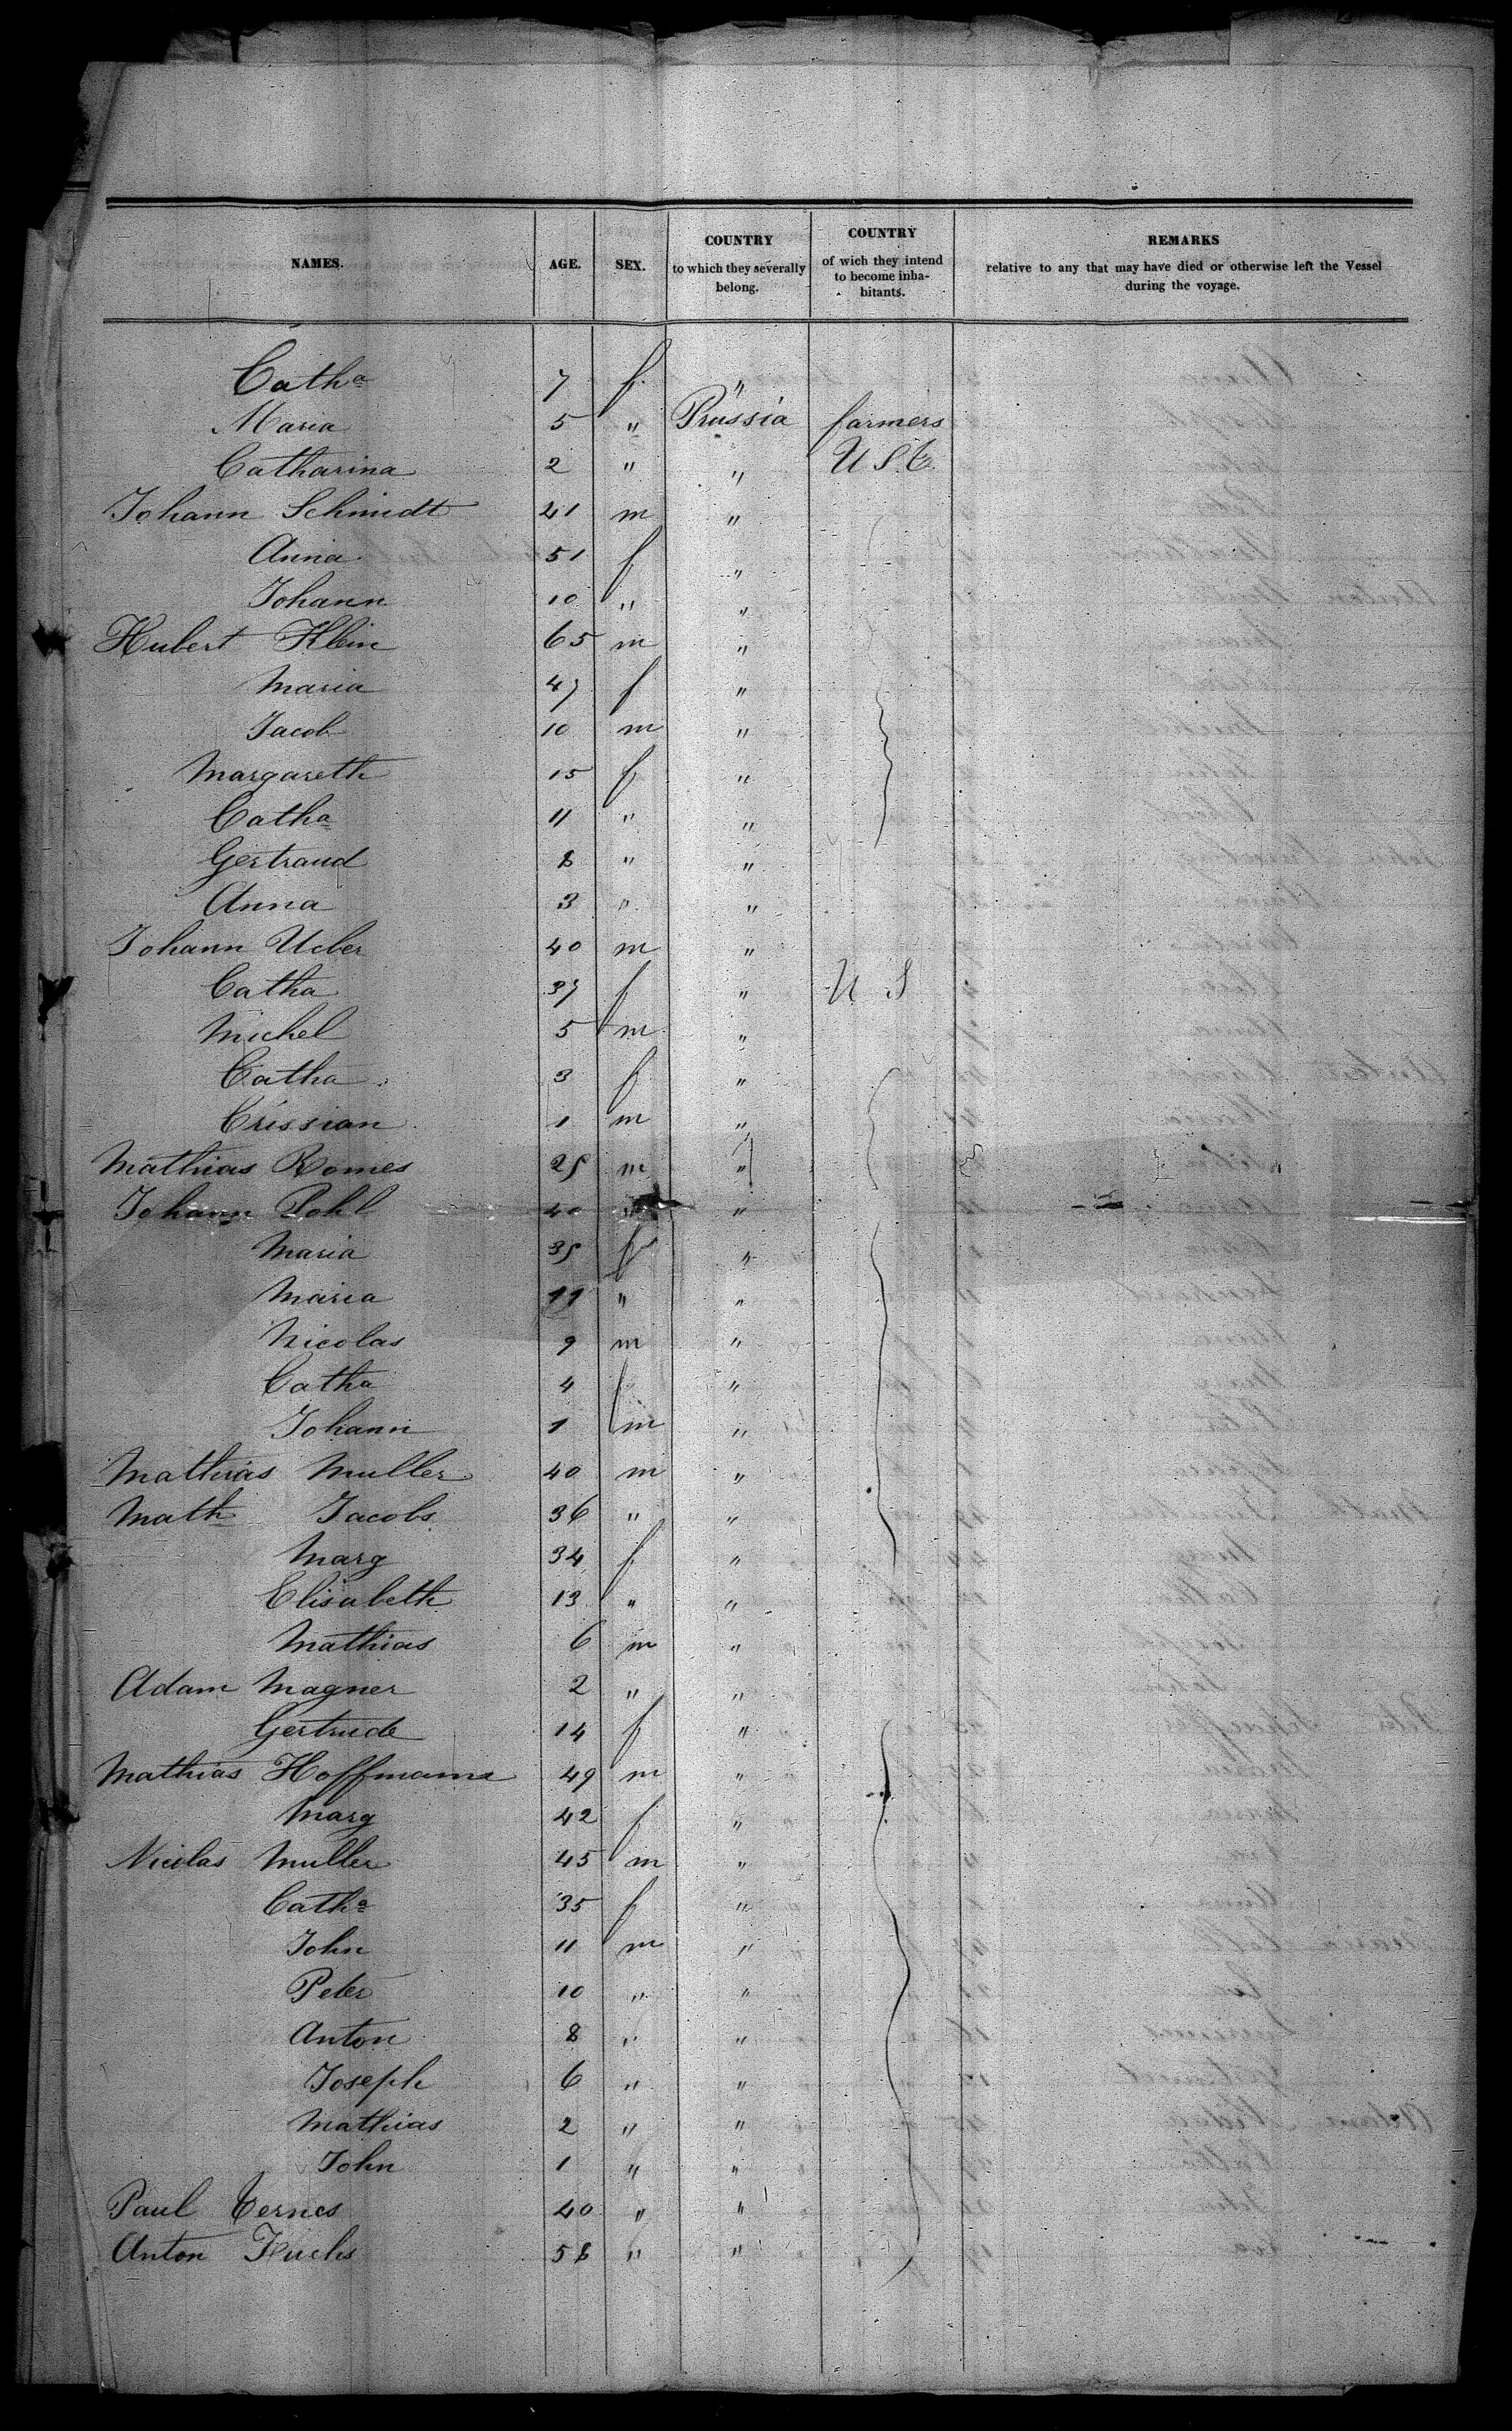 NAMES. AGE. SEX. COUNTRY to which they severally belong. COUNTRY of wich they intend to become inhabitants. REMARKS relative to any that may have died or otherwise left the Vessel during the voyage.
Catha 7 f "
Maria 5 " Prussia farmers
Catharina 2 " " U S
Johann Schmidt 41 m "
Anna 51 f "
Johann 10 " "
Hubert Klein 65 m "
Maria 47 f "
Jacob 10 m "
Margareth 15 f "
Catha 11 " "
Gertraud 8 " "
Anna 3 " "
Johann Ueber 40 m "
Catha 37 f " U S
Michel 5 m "
Catha 3 f "
Crissian 1 m "
Mathias Romes 25 m "
Johann Pohl 40 " "
Maria 35 f "
Maria 11 " "
Nicolas 9 m "
Catha 4 f "
Johann 1 m "
Mathias Muller 40 m "
Math Jacobs 36 " "
Marg 34 f "
Elisabeth 13 " "
Mathias 6 m "
Adam Magner 2 " "
Gertrude 14 f "
Mathias Hoffmann 49 m "
Marg 42 f "
Nicolas Muller 45 m "
Catha 35 f "
John 11 m "
Peter 10 " "
Anton 8 " "
Joseph 6 " "
Mathias 2 " "
John 1 " "
Paul Ternes 40 " "
Anton Fuchs 58 " "